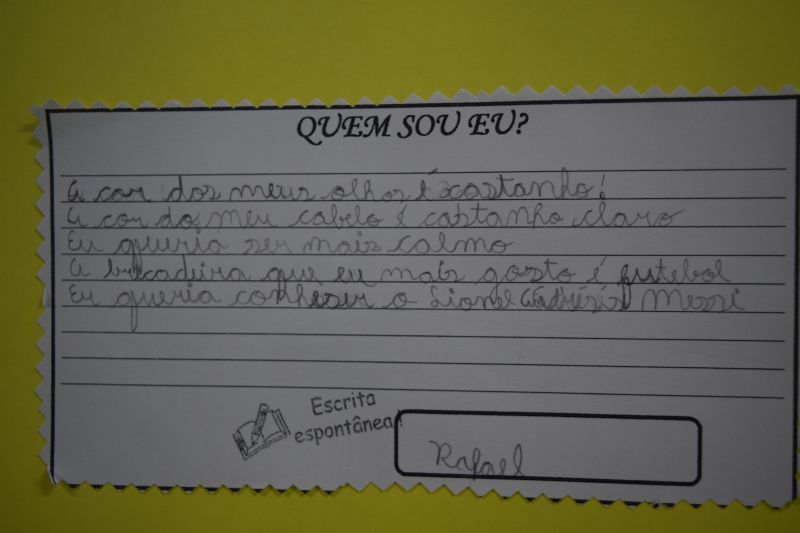 QUEM SOU EU?
A cor dos meus olhos é castanho!
A cor do meu cabelo é castanho claro
Eu queria ser mais calmo
A bricadeira que eu mais gosto é futebol
Eu queria conheser o Lionel Messi
Escrita
espontânea!
Rafael